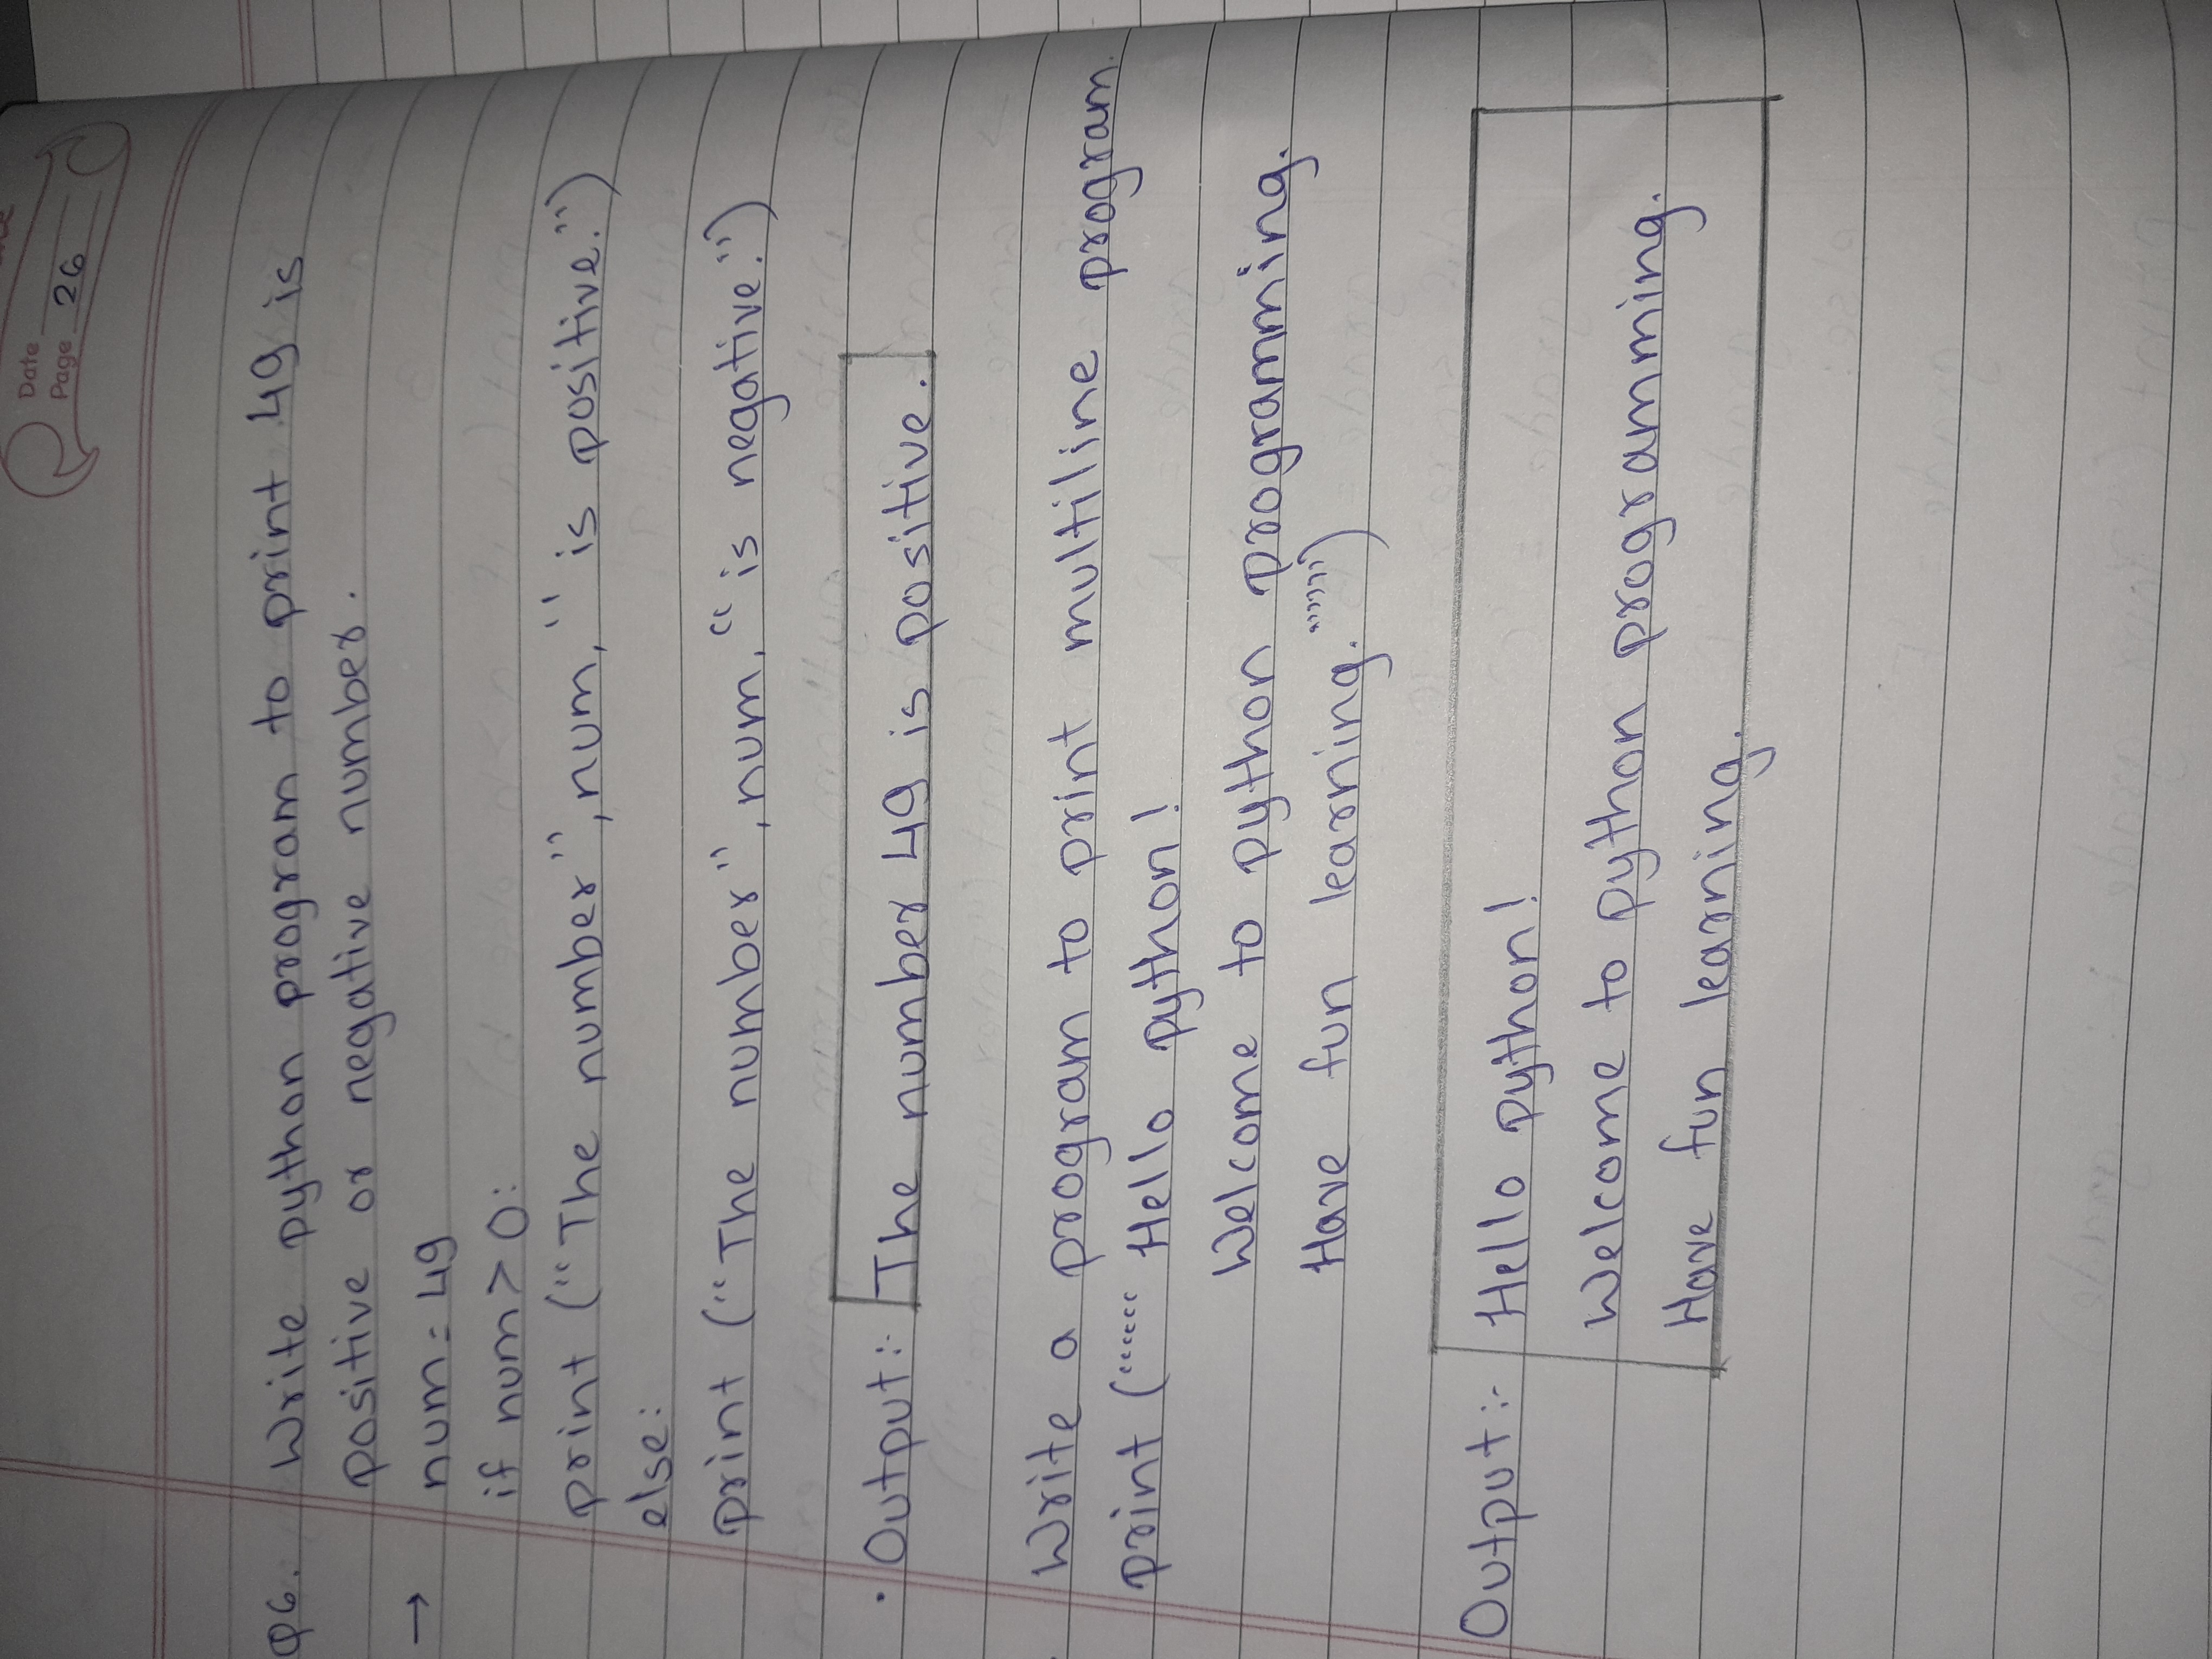 Date
Page 26
Q6. Write python program to print 49 is
positive or negative number.
→ num = 49
if num > 0:
print ("The number", num, " is positive.")
else:
print ("The number", num, " is negative.")
. Output:- The number 49 is positive.
Write a program to print multiline program.
print (""" Hello python!
Welcome to python programming.
Have fun learning.""")
Output:- Hello python!
Welcome to python programming.
Have fun learning.